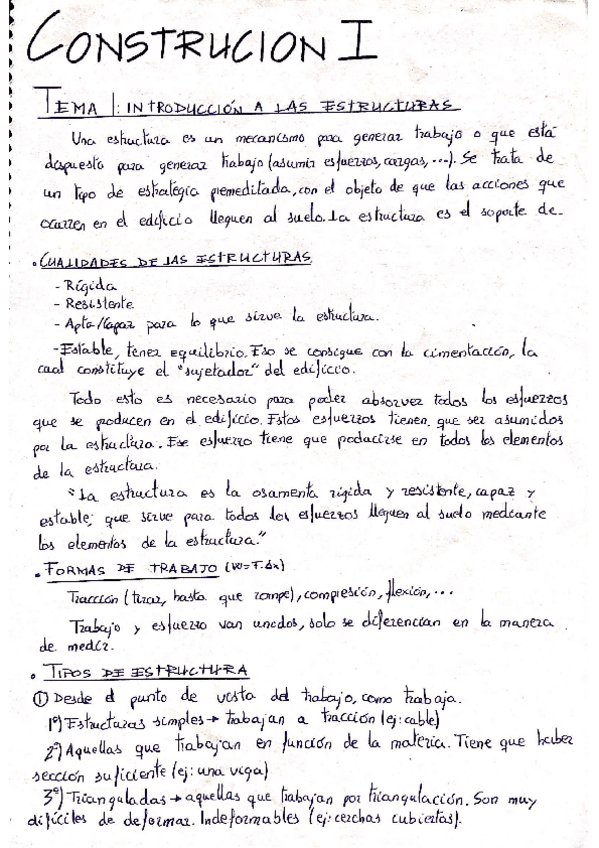 CONSTRUCION I
TEMA 1: INTRODUCCIÓN A LAS ESTRUCTURAS
Una estructura es un mecanismo para generar trabajo o que está
dispuesto para generar trabajo (asumir esfuerzos, cargas, ...). Se trata de
un tipo de estrategia premeditada, con el objeto de que las acciones que
ocurren en el edificio lleguen al suelo. La estructura es el soporte de-
• CUALIDADES DE LAS ESTRUCTURAS
- Rígida
- Resistente
- Apta/Capaz para lo que sirve la estructura.
- Estable, tener equilibrio. Eso se consigue con la cimentación, la
cual constituye el "sujetador" del edificio.
Todo esto es necesario para poder absorver todos los esfuerzos
que se producen en el edificio. Estos esfuerzos tienen que ser asumidos
por la estructura. Ese esfuerzo tiene que producirse en todos los elementos
de la estructura.
"La estructura es la osamenta rígida y resistente, capaz y
estable; que sirve para todos los esfuerzos lleguen al suelo mediante
los elementos de la estructura."
• FORMAS DE TRABAJO (W=F·Δx)
Tracción (tirar, hasta que rompe), compresión, flexión, ...
Trabajo y esfuerzo van unidos, solo se diferencian en la manera
de medir.
• TIPOS DE ESTRUCTURA
① Desde el punto de vista del trabajo, como trabaja.
1º) Estructuras simples → trabajan a tracción (ej: cable)
2º) Aquellas que trabajan en función de la materia. Tiene que haber
sección suficiente (ej: una viga)
3º) Trianguladas → aquellas que trabajan por triangulación. Son muy
difíciles de deformar. Indeformables (ej: cerchas cubiertas).